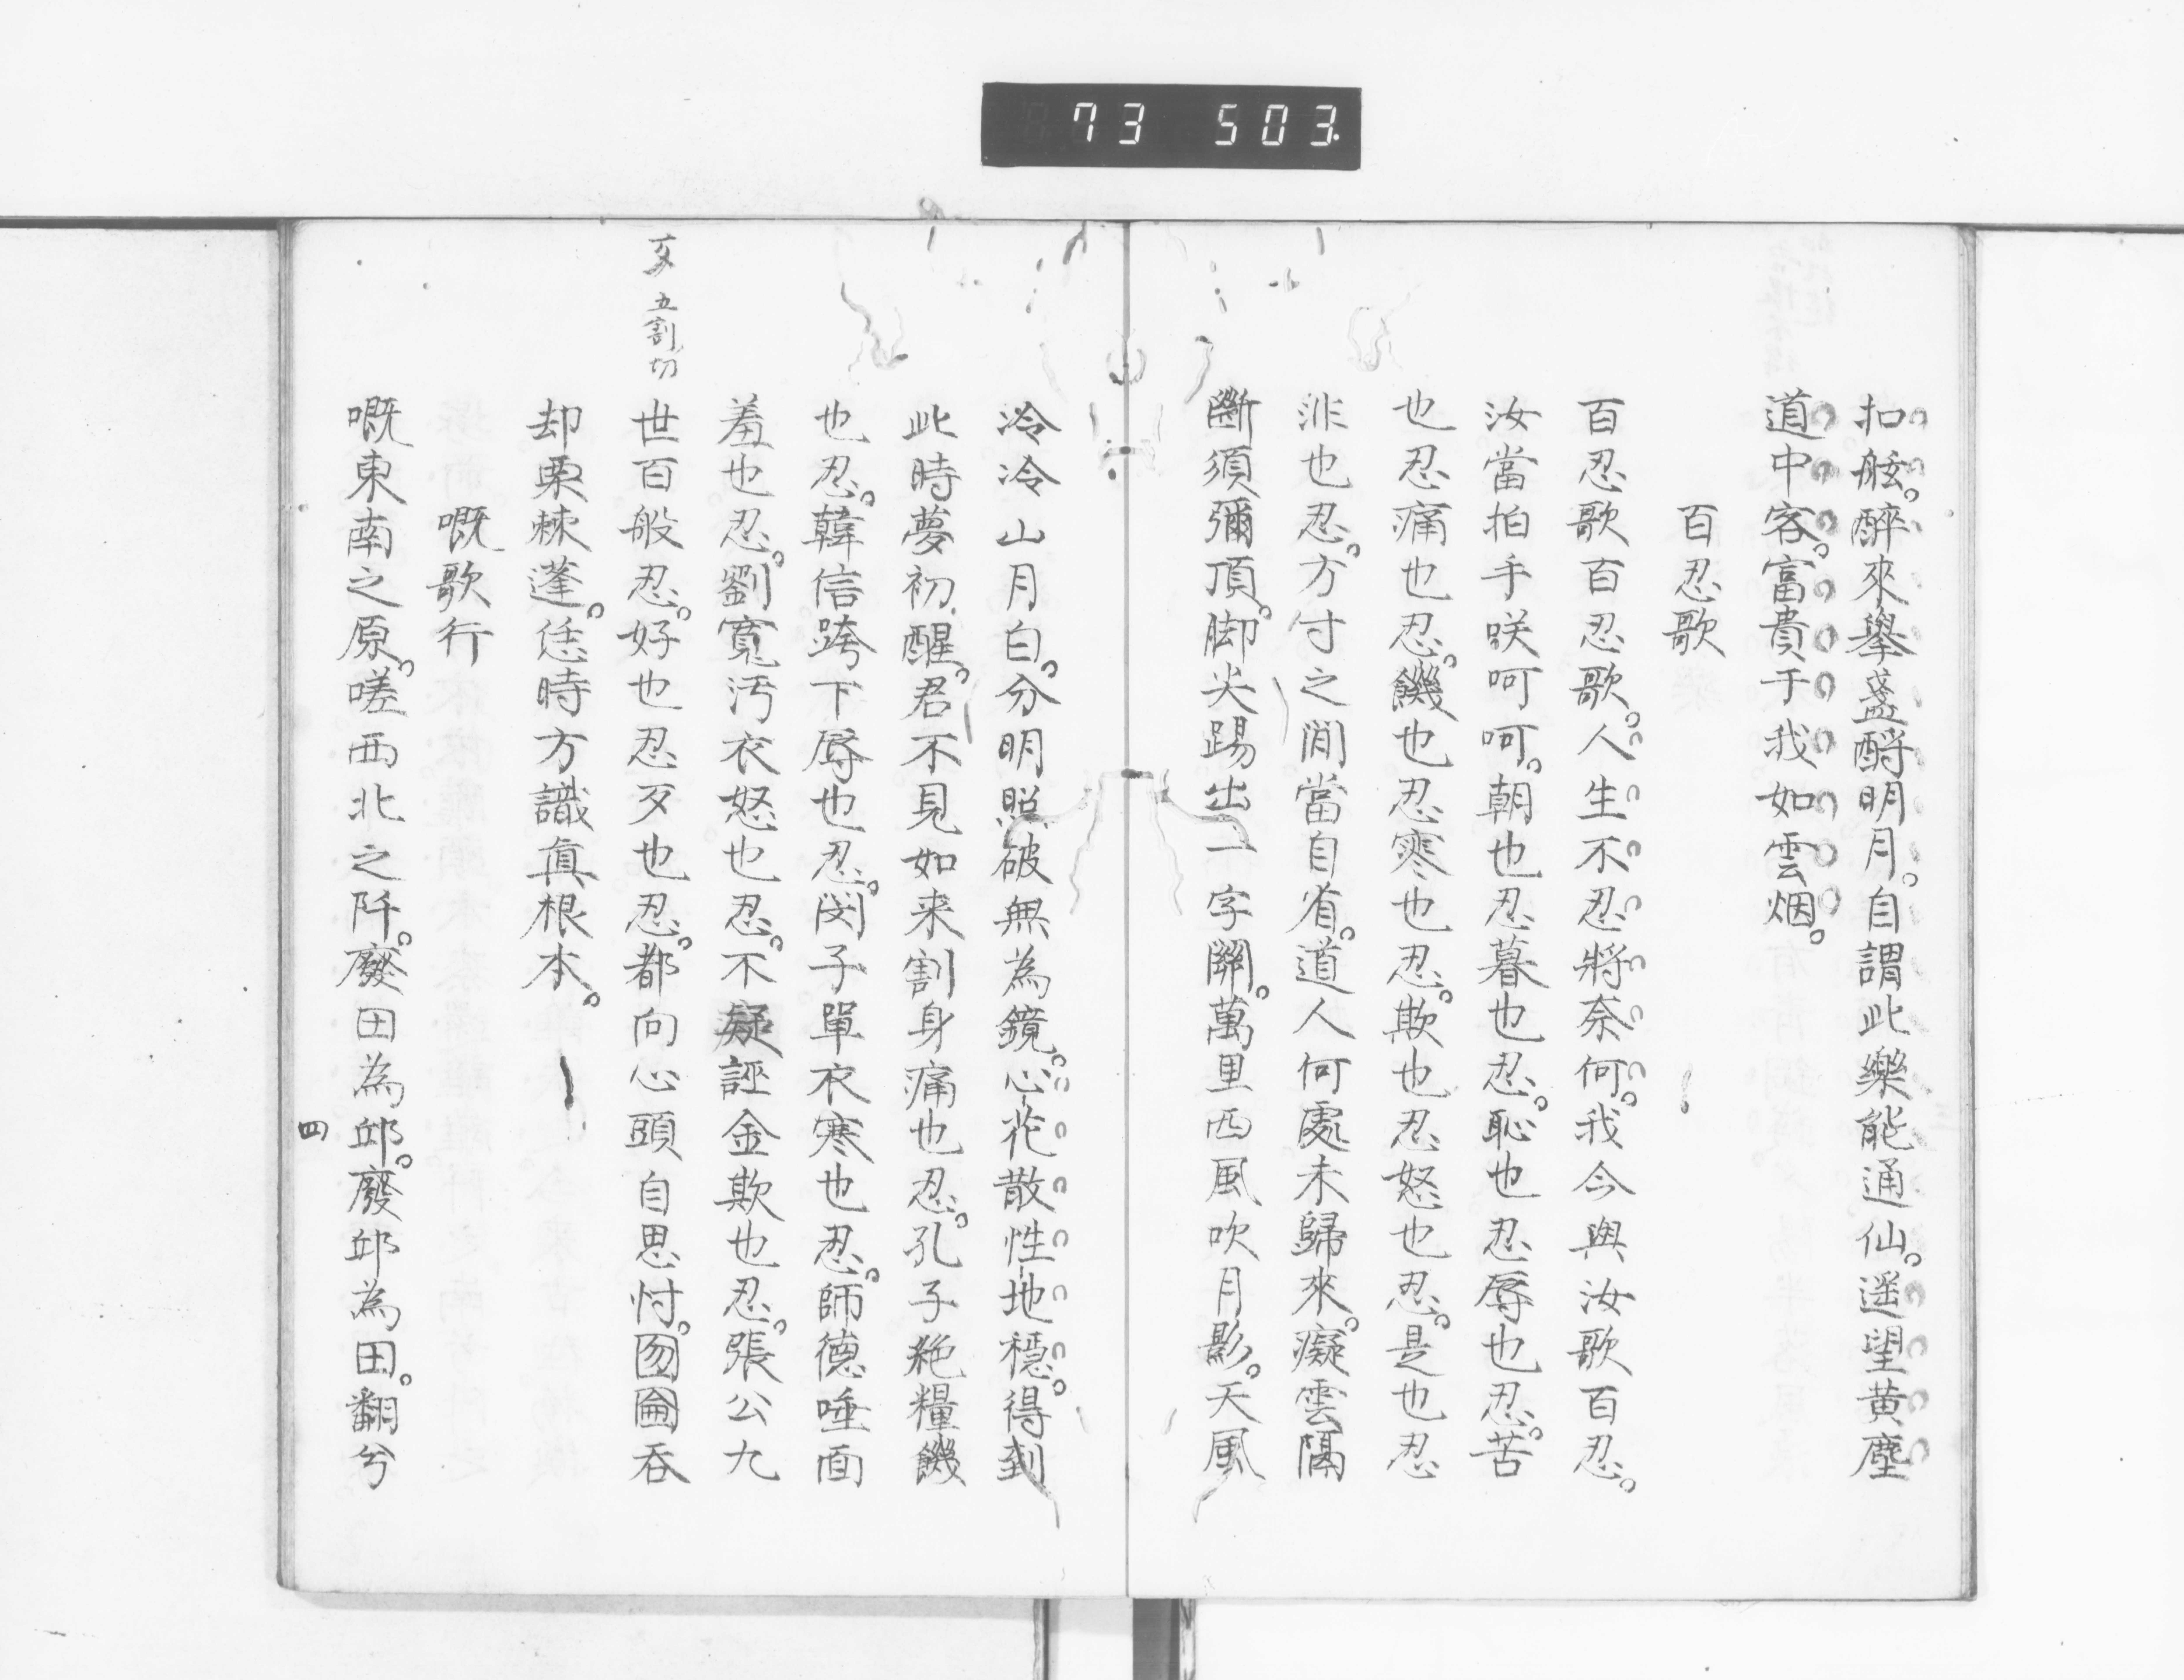 73 503
扣舷。醉來擧盞酹明月。自謂此樂能通仙。遥望黄塵
道中客。富貴于我如雲烟。
百忍歌
百忍歌百忍歌。人生不忍將奈何。我今與汝歌百忍。
汝當拍手咲呵呵。朝也忍暮也忍。恥也忍辱也忍。苦
也忍痛也忍。饑也忍寒也忍。欺也忍怒也忍。是也忍
非也忍。方寸之閒當自省。道人何處未歸來。癡雲隔
斷須彌頂。脚尖踢出一字關。萬里西風吹月影。天風
冷冷山月白。分明照破無為鏡。心花散性地穩。得到
此時夢初醒。君不見如来割身痛也忍。孔子絶糧饑
也忍。韓信跨下辱也忍。閔子單衣寒也忍。師德唾面
羞也忍。劉寬汚衣怒也忍。不疑誣金欺也忍。張公九
世百般忍。好也忍歹也忍。都向心頭自思忖。囫圇吞
却栗棘蓬。恁時方識真根本。
歹 五割切
嘅歌行
嘅東南之原。嗟西北之阡。廢田為邱。廢邱為田。翻兮
四